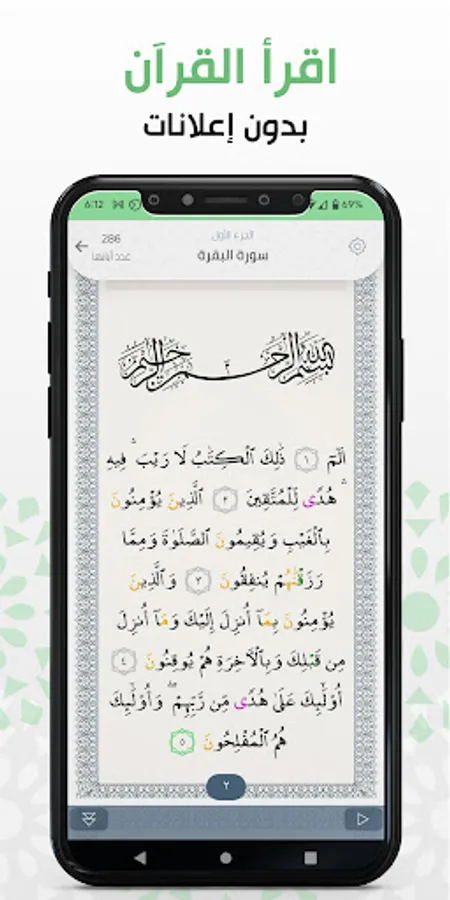 اقرأ القرآن
بدون إعلانات
6:12
69%
الجزء الأول
286
سورة البقرة
عدد آياتها
بِسْمِ ٱللَّهِ ٱلرَّحْمَٰنِ ٱلرَّحِيمِ
الٓمٓ ١ ذَٰلِكَ ٱلْكِتَٰبُ لَا رَيْبَ ۛ فِيهِ
ۛ هُدًى لِّلْمُتَّقِينَ ٢ ٱلَّذِينَ يُؤْمِنُونَ
بِٱلْغَيْبِ وَيُقِيمُونَ ٱلصَّلَوٰةَ وَمِمَّا
رَزَقْنَٰهُمْ يُنفِقُونَ ٣ وَٱلَّذِينَ
يُؤْمِنُونَ بِمَآ أُنزِلَ إِلَيْكَ وَمَآ أُنزِلَ
مِن قَبْلِكَ وَبِٱلْـَٔاخِرَةِ هُمْ يُوقِنُونَ ٤
أُو۟لَٰٓئِكَ عَلَىٰ هُدًى مِّن رَّبِّهِمْ ۖ وَأُو۟لَٰٓئِكَ
هُمُ ٱلْمُفْلِحُونَ ٥
٢